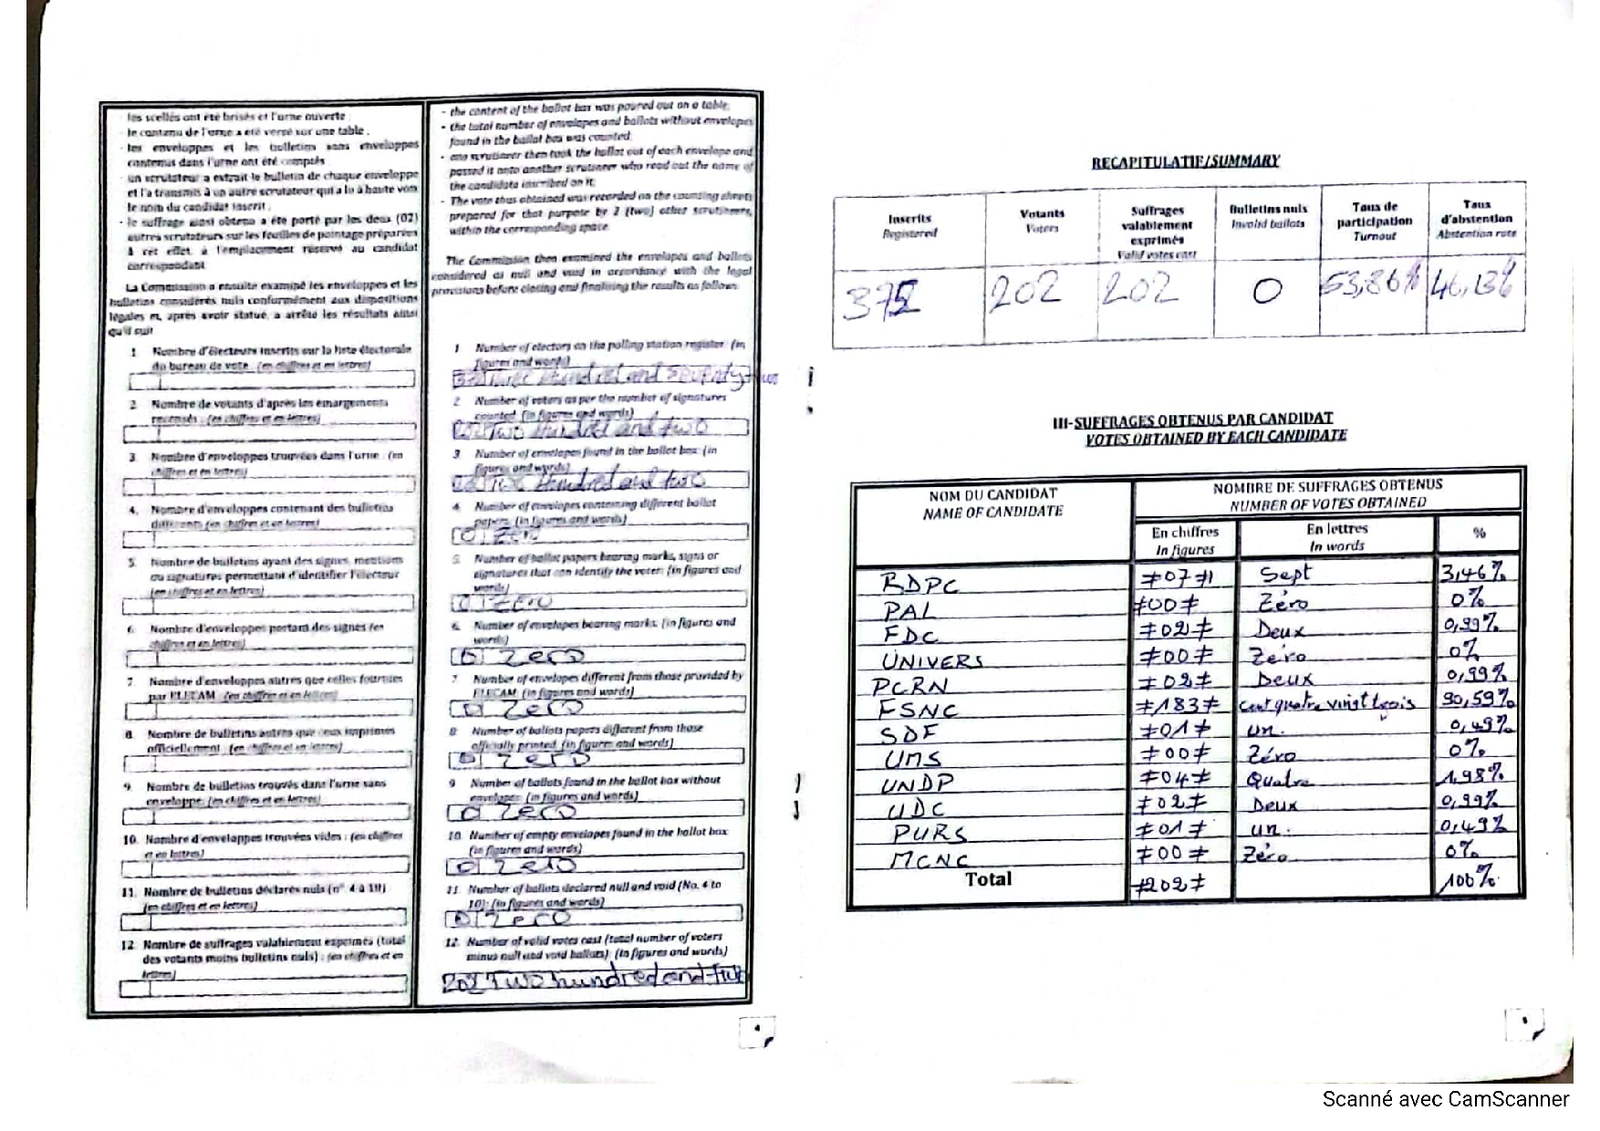 les scellés ont été brisés et l'urne ouverte ;
- le contenu de l'urne a été versé sur une table ;
- les enveloppes et les bulletins sans enveloppes
contenus dans l'urne ont été comptés
- un scrutateur a extrait le bulletin de chaque enveloppe
et l'a transmis à un autre scrutateur qui a lu à haute voix
le nom du candidat inscrit ;
- le suffrage ainsi obtenu a été porté par les deux (02)
autres scrutateurs sur les feuilles de pointage préparées
à cet effet, à l'emplacement réservé au candidat
correspondant.
La Commission a ensuite examiné les enveloppes et les
bulletins considérés nuls conformément aux dispositions
légales et, après avoir statué, a arrêté les résultats ainsi
qu'il suit
1 Nombre d'électeurs inscrits sur la liste électorale
du bureau de vote : (en chiffres et en lettres)
2 Nombre de votants d'après les émargements
recensés : (en chiffres et en lettres)
3 Nombre d'enveloppes trouvées dans l'urne : (en
chiffres et en lettres)
4. Nombre d'enveloppes contenant des bulletins
différents (en chiffres et en lettres)
5. Nombre de bulletins ayant des signes, mentions
ou signatures permettant d'identifier l'électeur
(en chiffres et en lettres)
6. Nombre d'enveloppes portant des signes (en
chiffres et en lettres)
7. Nombre d'enveloppes autres que celles fournies
par ELECAM : (en chiffres et en lettres)
8. Nombre de bulletins autres que ceux imprimés
officiellement : (en chiffres et en lettres)
9. Nombre de bulletins trouvés dans l'urne sans
enveloppe: (en chiffres et en lettres)
10. Nombre d'enveloppes trouvées vides : (en chiffres
et en lettres)
11. Nombre de bulletins déclarés nuls (n° 4 à 10)
(en chiffres et en lettres)
12. Nombre de suffrages valablement exprimés (total
des votants moins bulletins nuls) : (en chiffres et en
lettres)
- the content of the ballot box was poured out on a table;
- the total number of envelopes and ballots without envelopes
found in the ballot box was counted;
- one scrutineer then took the ballot out of each envelope and
passed it onto another scrutineer who read out the name of
the candidate inscribed on it;
- The vote thus obtained was recorded on the counting sheets
prepared for that purpose by 2 (two) other scrutineers,
within the corresponding space.
The Commission then examined the envelopes and ballots
considered as null and void in accordance with the legal
provisions before closing and finalising the results as follows:
1 Number of electors on the polling station register (in
figures and words)
Three Hundred and Seventy two
2 Number of voters as per the number of signatures
counted (in figures and words)
202 Two Hundred and two
3 Number of envelopes found in the ballot box: (in
figures and words)
Two Hundred and two
4. Number of envelopes containing different ballot
papers: (in figures and words)
0 Zero
5. Number of ballot papers bearing marks, signs or
signatures that can identify the voter: (in figures and
words)
0 Zero
6. Number of envelopes bearing marks: (in figures and
words)
0 Zero
7 Number of envelopes different from those provided by
ELECAM: (in figures and words)
0 Zero
8 Number of ballots papers different from those
officially printed: (in figures and words)
0 Zero
9 Number of ballots found in the ballot box without
envelopes: (in figures and words)
0 Zero
10. Number of empty envelopes found in the ballot box
(in figures and words)
0 Zero
11. Number of ballots declared null and void (No. 4 to
10): (in figures and words)
0 Zero
12. Number of valid votes cast (total number of voters
minus null and void ballots): (in figures and words)
202 Two hundred and
RECAPITULATIF/SUMMARY
Inscrits Registered
Votants Voters
Suffrages valablement exprimés Valid votes cast
Bulletins nuls Invalid ballots
Taux de participation Turnout
Taux d'abstention Abstention rate
372 202 202 0 53,86% 46,13%
III-SUFFRAGES OBTENUS PAR CANDIDAT
VOTES OBTAINED BY EACH CANDIDATE
NOM DU CANDIDAT NOMBRE DE SUFFRAGES OBTENUS
NAME OF CANDIDATE NUMBER OF VOTES OBTAINED
En chiffres En lettres %
In figures In words
RDPC ≠07≠ Sept 3,46%
PAL ≠00≠ Zéro 0%
FDC ≠02≠ Deux 0,99%
UNIVERS ≠00≠ Zéro 0%
PCRN ≠02≠ Deux 0,99%
FSNC ≠183≠ cent quatre vingt trois 90,59%
SDF ≠01≠ un. 0,49%
UMS ≠00≠ Zéro 0%
UNDP ≠04≠ Quatre 1,98%
UDC ≠02≠ Deux 0,99%
PURS ≠01≠ un. 0,49%
MCNC ≠00≠ Zéro 0%
Total ≠202≠ 100%
Scanné avec CamScanner